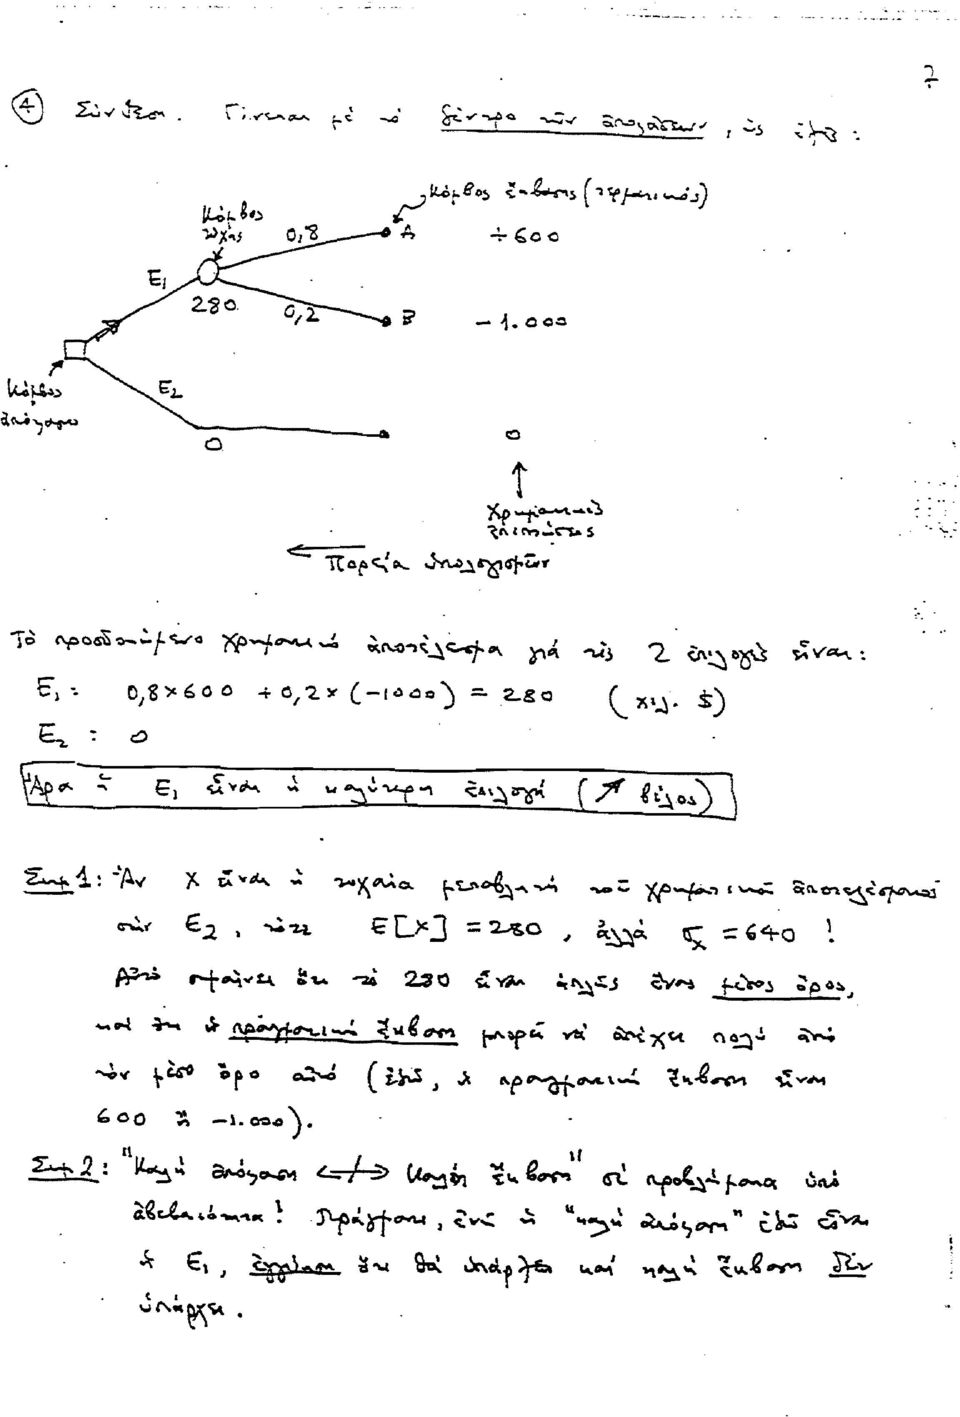 2
④ Σύνθεση. Γίνεται μέ τό δέντρο τῶν ἀποφάσεων, ὡς ἑξῆς:
Κόμβος ἔκβασης (τερματικός)
Κόμβος
τύχης
0,8
A
+600
E₁
280
0,2
B
-1.000
Κόμβος
ἀπόφασης
E₂
0
0
Χρηματικές
ἐπιπτώσεις
← Πορεία ὑπολογισμῶν
Τό προσδοκώμενο χρηματικό ἀποτέλεσμα γιά τίς 2 ἐπιλογές εἶναι:
E₁: 0,8×600 + 0,2×(-1000) = 280 (χιλ. $)
E₂ : 0
Ἄρα ἡ E₁ εἶναι ἡ καλύτερη ἐπιλογή (↗ βέλος)
Σημ 1: Ἄν X εἶναι ἡ τυχαία μεταβλητή τοῦ χρηματικοῦ ἀποτελέσματος
στήν E₂, τότε E[X] = 280, ἀλλά σₓ = 640 !
Αὐτό σημαίνει ὅτι τό 280 εἶναι ἁπλῶς ἕνας μέσος ὅρος,
καί ὅτι ἡ πραγματική ἔκβαση μπορεῖ νά ἀπέχει πολύ ἀπό
τόν μέσο ὅρο αὐτό (ἐδῶ, ἡ πραγματική ἔκβαση εἶναι
600 ἤ -1.000).
Σημ 2: "Καλή ἀπόφαση <-/-> Καλή ἔκβαση" σέ προβλήματα ὑπό
ἀβεβαιότητα! Πράγματι, ἐνῶ ἡ "καλή ἀπόφαση" ἐδῶ εἶναι
ἡ E₁, ἐγγύηση ὅτι θά ὑπάρξει καί καλή ἔκβαση δέν
ὑπάρχει.